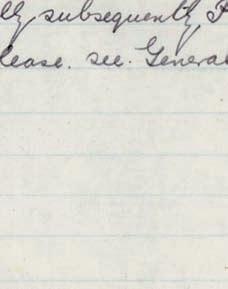 lly subsequently P
lease. see. General